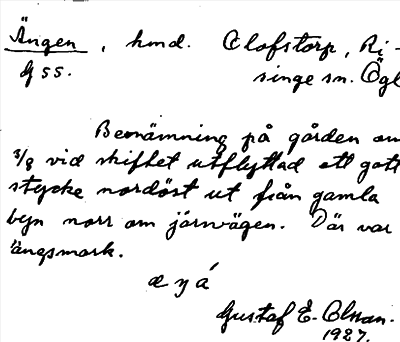 Ängen, hmd. Olofstorp, Ri-
g ss. singe sn. Ögl
Benämning på gården om
3/8 vid skiftet utflyttad ett gott
stycke nordöst ut från gamla
byn norr om järnvägen. Där var
ängsmark.
æ y á
Gustaf E. Olsson.
1927.